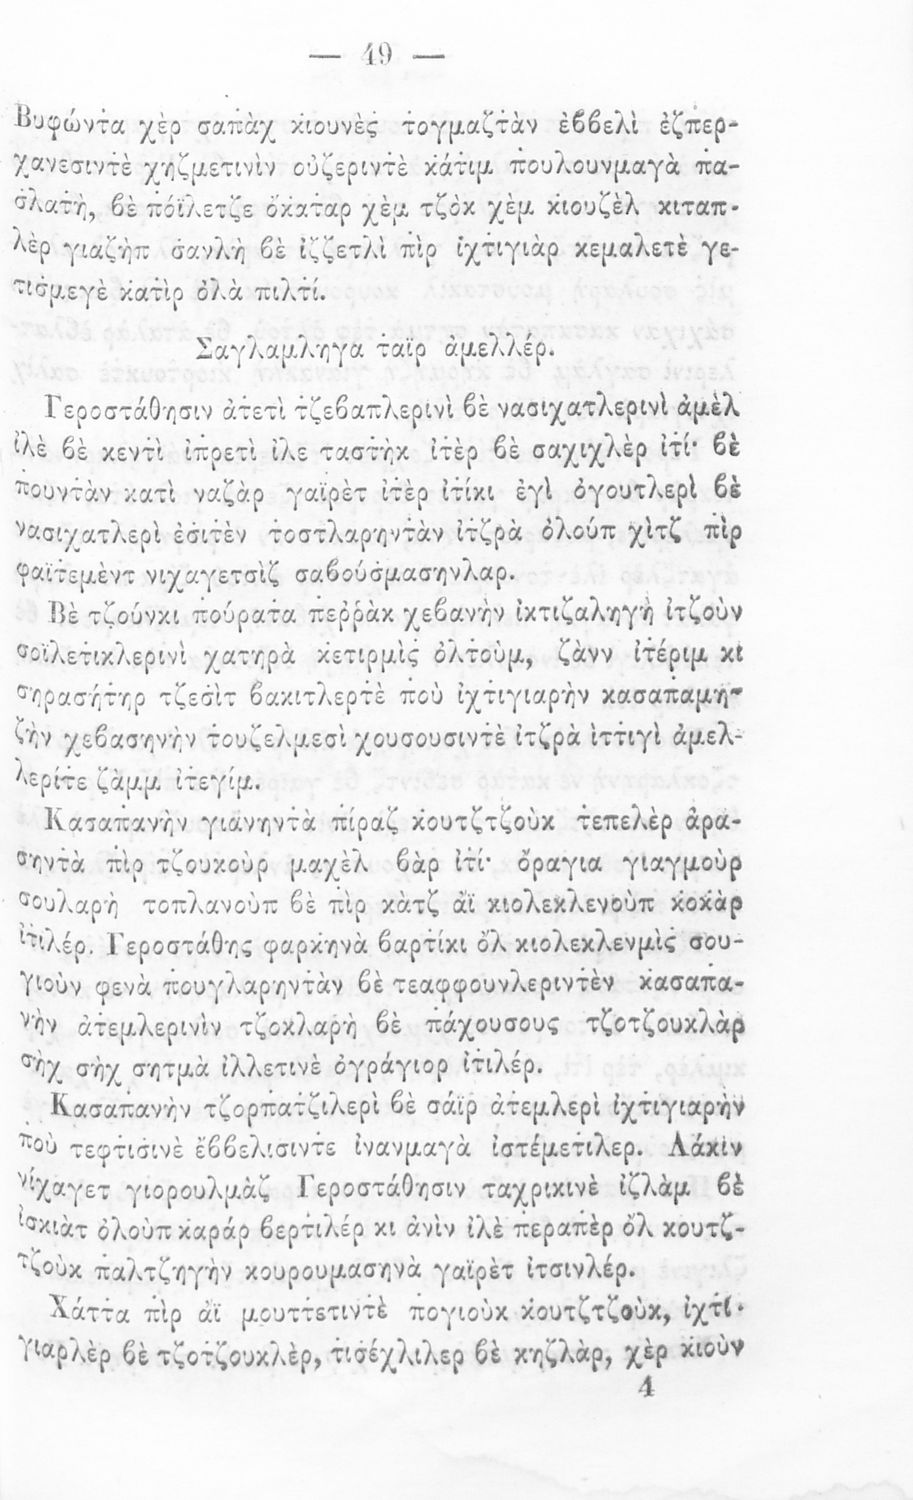 — 49 —
Βυφώντα χὲρ σαπὰχ κιουνὲς τογμαζτὰν ἐββελὶ ἐζπερ-
χανεσιντὲ χηζμετινὶν οὐζεριντὲ κάτιμ πουλουνμαγὰ πα-
σλατὴ, βὲ πόϊλετζε ὄκαταρ χὲμ τζὸκ χὲμ κιουζὲλ κιταπ-
λὲρ γιαζὴπ σανλὴ βὲ ἰζζετλὶ πὶρ ἰχτιγιὰρ κεμαλετὲ γε-
τισμεγὲ κατὶρ ὀλὰ πιλτί.
Σαγλαμληγα ταῒρ ἀμελλέρ.
Γεροστάθησιν ἀτετὶ τζεβαπλερινὶ βὲ νασιχατλερινὶ ἀμὲλ
ἰλὲ βὲ κεντὶ ἰπρετὶ ἰλε ταστὴκ ἰτὲρ βὲ σαχιχλὲρ ἰτί· βὲ
πουντὰν κατὶ ναζὰρ γαϊρὲτ ἰτὲρ ἰτίκι ἐγὶ ὀγουτλερὶ βὲ
νασιχατλερὶ ἐσιτὲν τοστλαρηντὰν ἰτζρὰ ὀλούπ χὶτζ πὶρ
φαϊτεμὲντ νιχαγετσὶζ σαβούσμασηνλαρ.
Βὲ τζούνκι πούρατα πεῤῥὰκ χεβανὴν ἰκτιζαληγὴ ἰτζοὺν
σοϊλετικλερινὶ χατηρὰ κετιρμὶς ὀλτοὺμ, ζὰνν ἰτέριμ κὶ
σηρασήτηρ τζεσὶτ βακιτλερτὲ ποὺ ἰχτιγιαρὴν κασαπαμη-
ζὴν χεβασηνὴν τουζελμεσὶ χουσουσιντὲ ἰτζρὰ ἰττιγὶ ἀμελ-
λερίτε ζὰμμ ἰτεγίμ.
Κασαπανὴν γιάνηντὰ πίραζ κουτζτζοὺκ τεπελὲρ ἀρα-
σηντὰ πὶρ τζουκοὺρ μαχὲλ βὰρ ἰτί· ὄραγια γιαγμοὺρ
σουλαρὴ τοπλανοὺπ βὲ πὶρ κὰτζ ἀῒ κιολεκλενοὺπ κοκὰρ
ἰτιλέρ. Γεροστάθης φαρκηνὰ βαρτίκι ὂλ κιολεκλενμὶς σου-
γιοὺν φενὰ πουγλαρηντὰν βὲ τεαφφουνλεριντὲν κασαπα-
νὴν ἀτεμλερινὶν τζοκλαρὴ βὲ πάχουσους τζοτζουκλὰρ
σὴχ σὴχ σητμὰ ἰλλετινὲ ὀγράγιορ ἰτιλέρ.
Κασαπανὴν τζορπατζιλερὶ βὲ σάϊρ ἀτεμλερὶ ἰχτιγιαρὴν
ποὺ τεφτισινὲ ἔββελισιντε ἰνανμαγὰ ἰστέμετιλερ. Λάκιν
νίχαγετ γιορουλμὰζ Γεροστάθησιν ταχρικινὲ ἰζλὰμ βὲ
ἰσκιὰτ ὀλοὺπ καράρ βερτιλέρ κι ἀνὶν ἰλὲ περαπὲρ ὂλ κουτζ-
τζοὺκ παλτζηγὴν κουρουμασηνὰ γαϊρὲτ ἰτσινλέρ.
Χάττα πὶρ ἀῒ μουττετιντὲ πογιοὺκ κουτζτζοὺκ, ἰχτι-
γιαρλὲρ βὲ τζοτζουκλὲρ, τισέχλιλερ βὲ κηζλὰρ, χὲρ κιοὺν
4